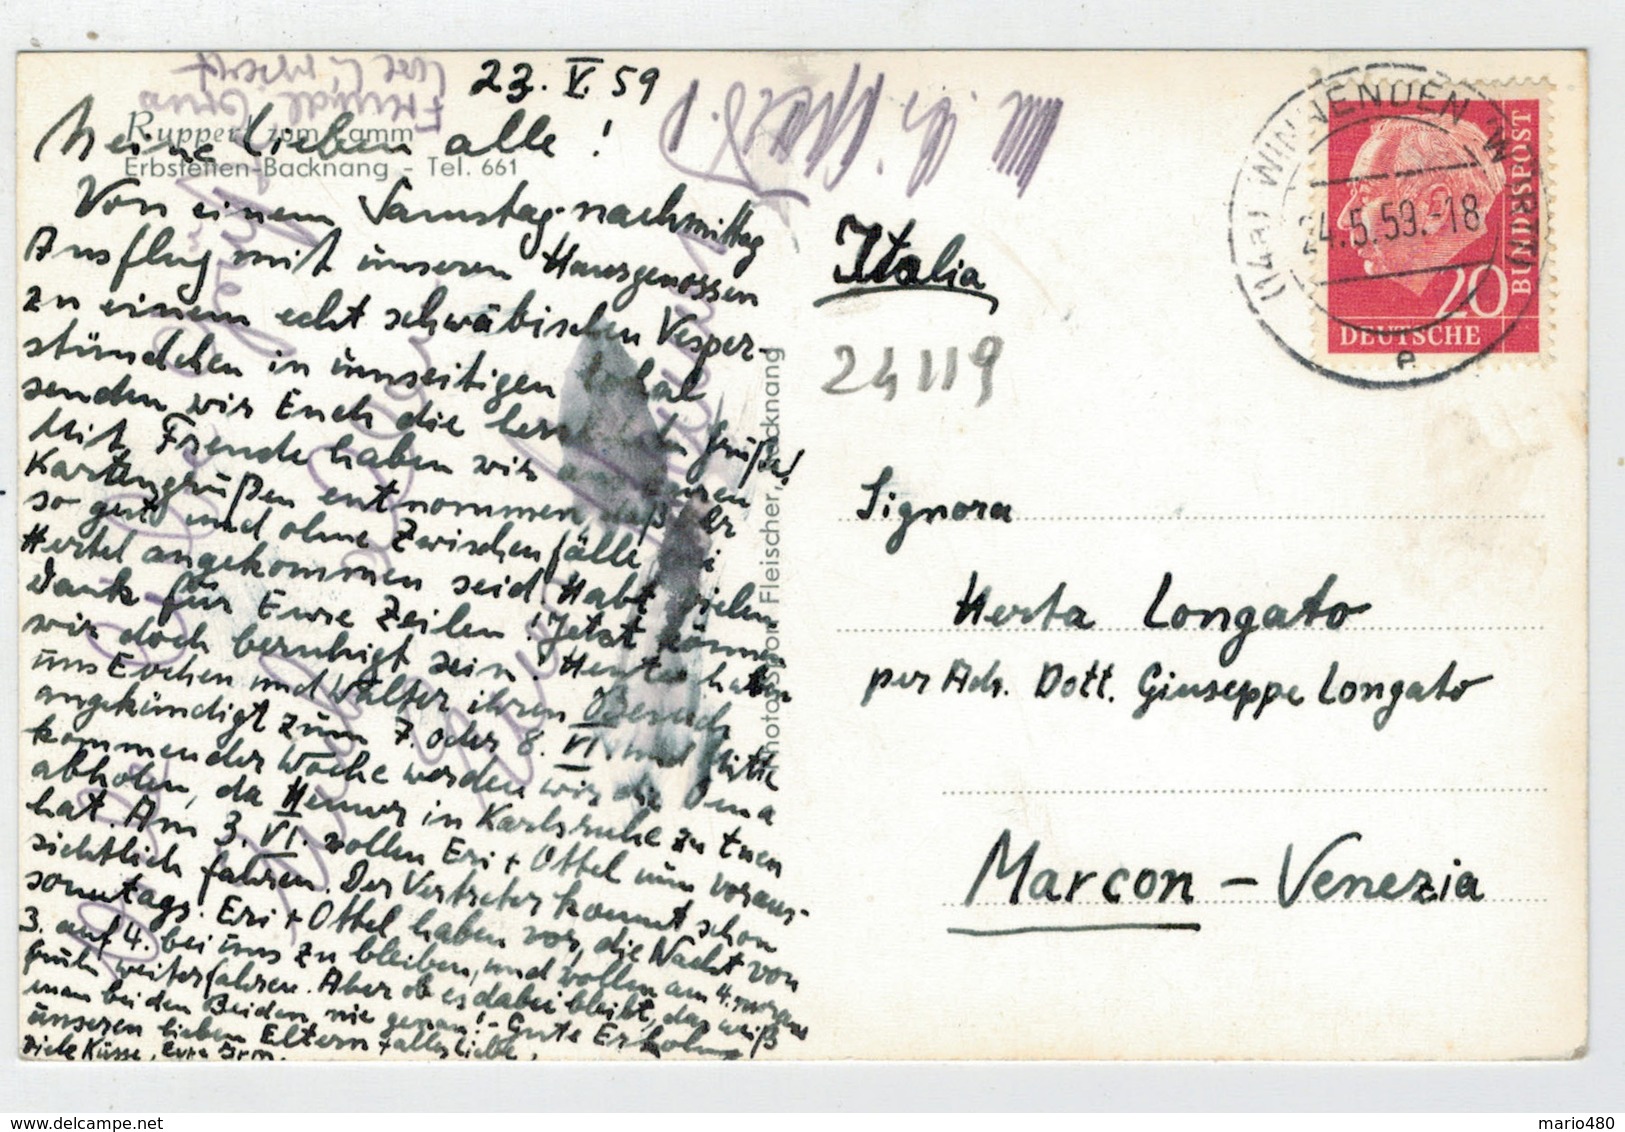 23. V. 59
Meine lieben alle!
Ruppert zum Lamm
Erbstetten-Backnang - Tel. 661
Von einem Samstag-nachmittag
Ausflug mit unseren Hausgenossen
zu einem echt schwäbischen Vesper-
stündchen in umseitigen Lokal
senden wir Euch die herzlichsten Grüße!
Mit Freude haben wir aus Euren
Kartengrüßen entnommen, daß Ihr
so gut und ohne Zwischenfälle bei
Hertel angekommen seid. Habt vielen
Dank für Eure Zeilen! Jetzt können
wir doch beruhigt sein! Heute haben
uns Evchen und Walter ihren Besuch
angekündigt zum 7. oder 8. VI. und Mitte
kommender Woche werden wir die Oma
abholen, da in Karlsruhe zu tuen
hat. Am 3. VI. wollen Eri + Ottel nun voraus-
sichtlich fahren. Der Vertreter kommt schon
sonntags. Eri + Ottel haben vor, die Nacht von
3. auf 4. bei uns zu bleiben, und wollen am 4. morgens
früh weiterfahren. Aber ob es dabei bleibt, das weiß
man bei den Beiden nie genau! - Gute Erholung
unseren lieben Eltern + alles Liebe,
viele Küsse, Eure
Photo Fleischer, Backnang
Italia
24119
Signora
Herta Longato
per Adr. Dott. Giuseppe Longato
Marcon - Venezia
(14a) WINNENDEN
24.5.59.-18
e
20
DEUTSCHE
BUNDESPOST
mario480